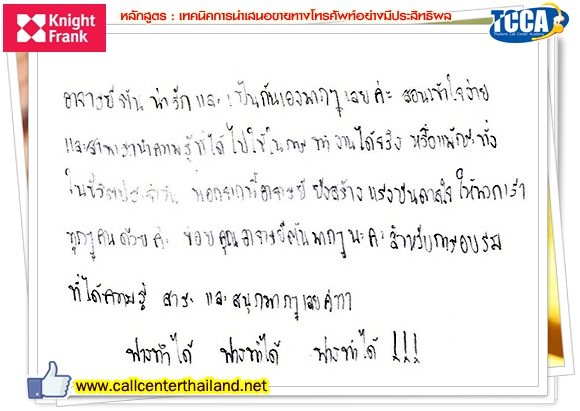 Knight
Frank
หลักสูตร : เทคนิคการนำเสนอขายทางโทรศัพท์อย่างมีประสิทธิผล
TCCA
Thailand Call Center Academy
น่ารัก และเป็นกันเองมากๆ เลยค่ะ สอนเข้าใจง่าย
และสามารถนำความรู้ที่ได้ไปใช้ในการทำงานได้จริง หรือแม้กระทั่ง
ในชีวิตประจำวัน นอกจากนี้อาจารย์ยังสร้างแรงบันดาลใจ ให้พวกเรา
ทุกๆ คนด้วยค่ะ ขอบคุณอาจารย์ มากๆ นะคะ สำหรับการอบรม
ที่ได้ความรู้ สาระ และสนุกมากๆ เลยค่าาา
ทำได้ ทำได้ ทำได้ !!!
www.callcenterthailand.net